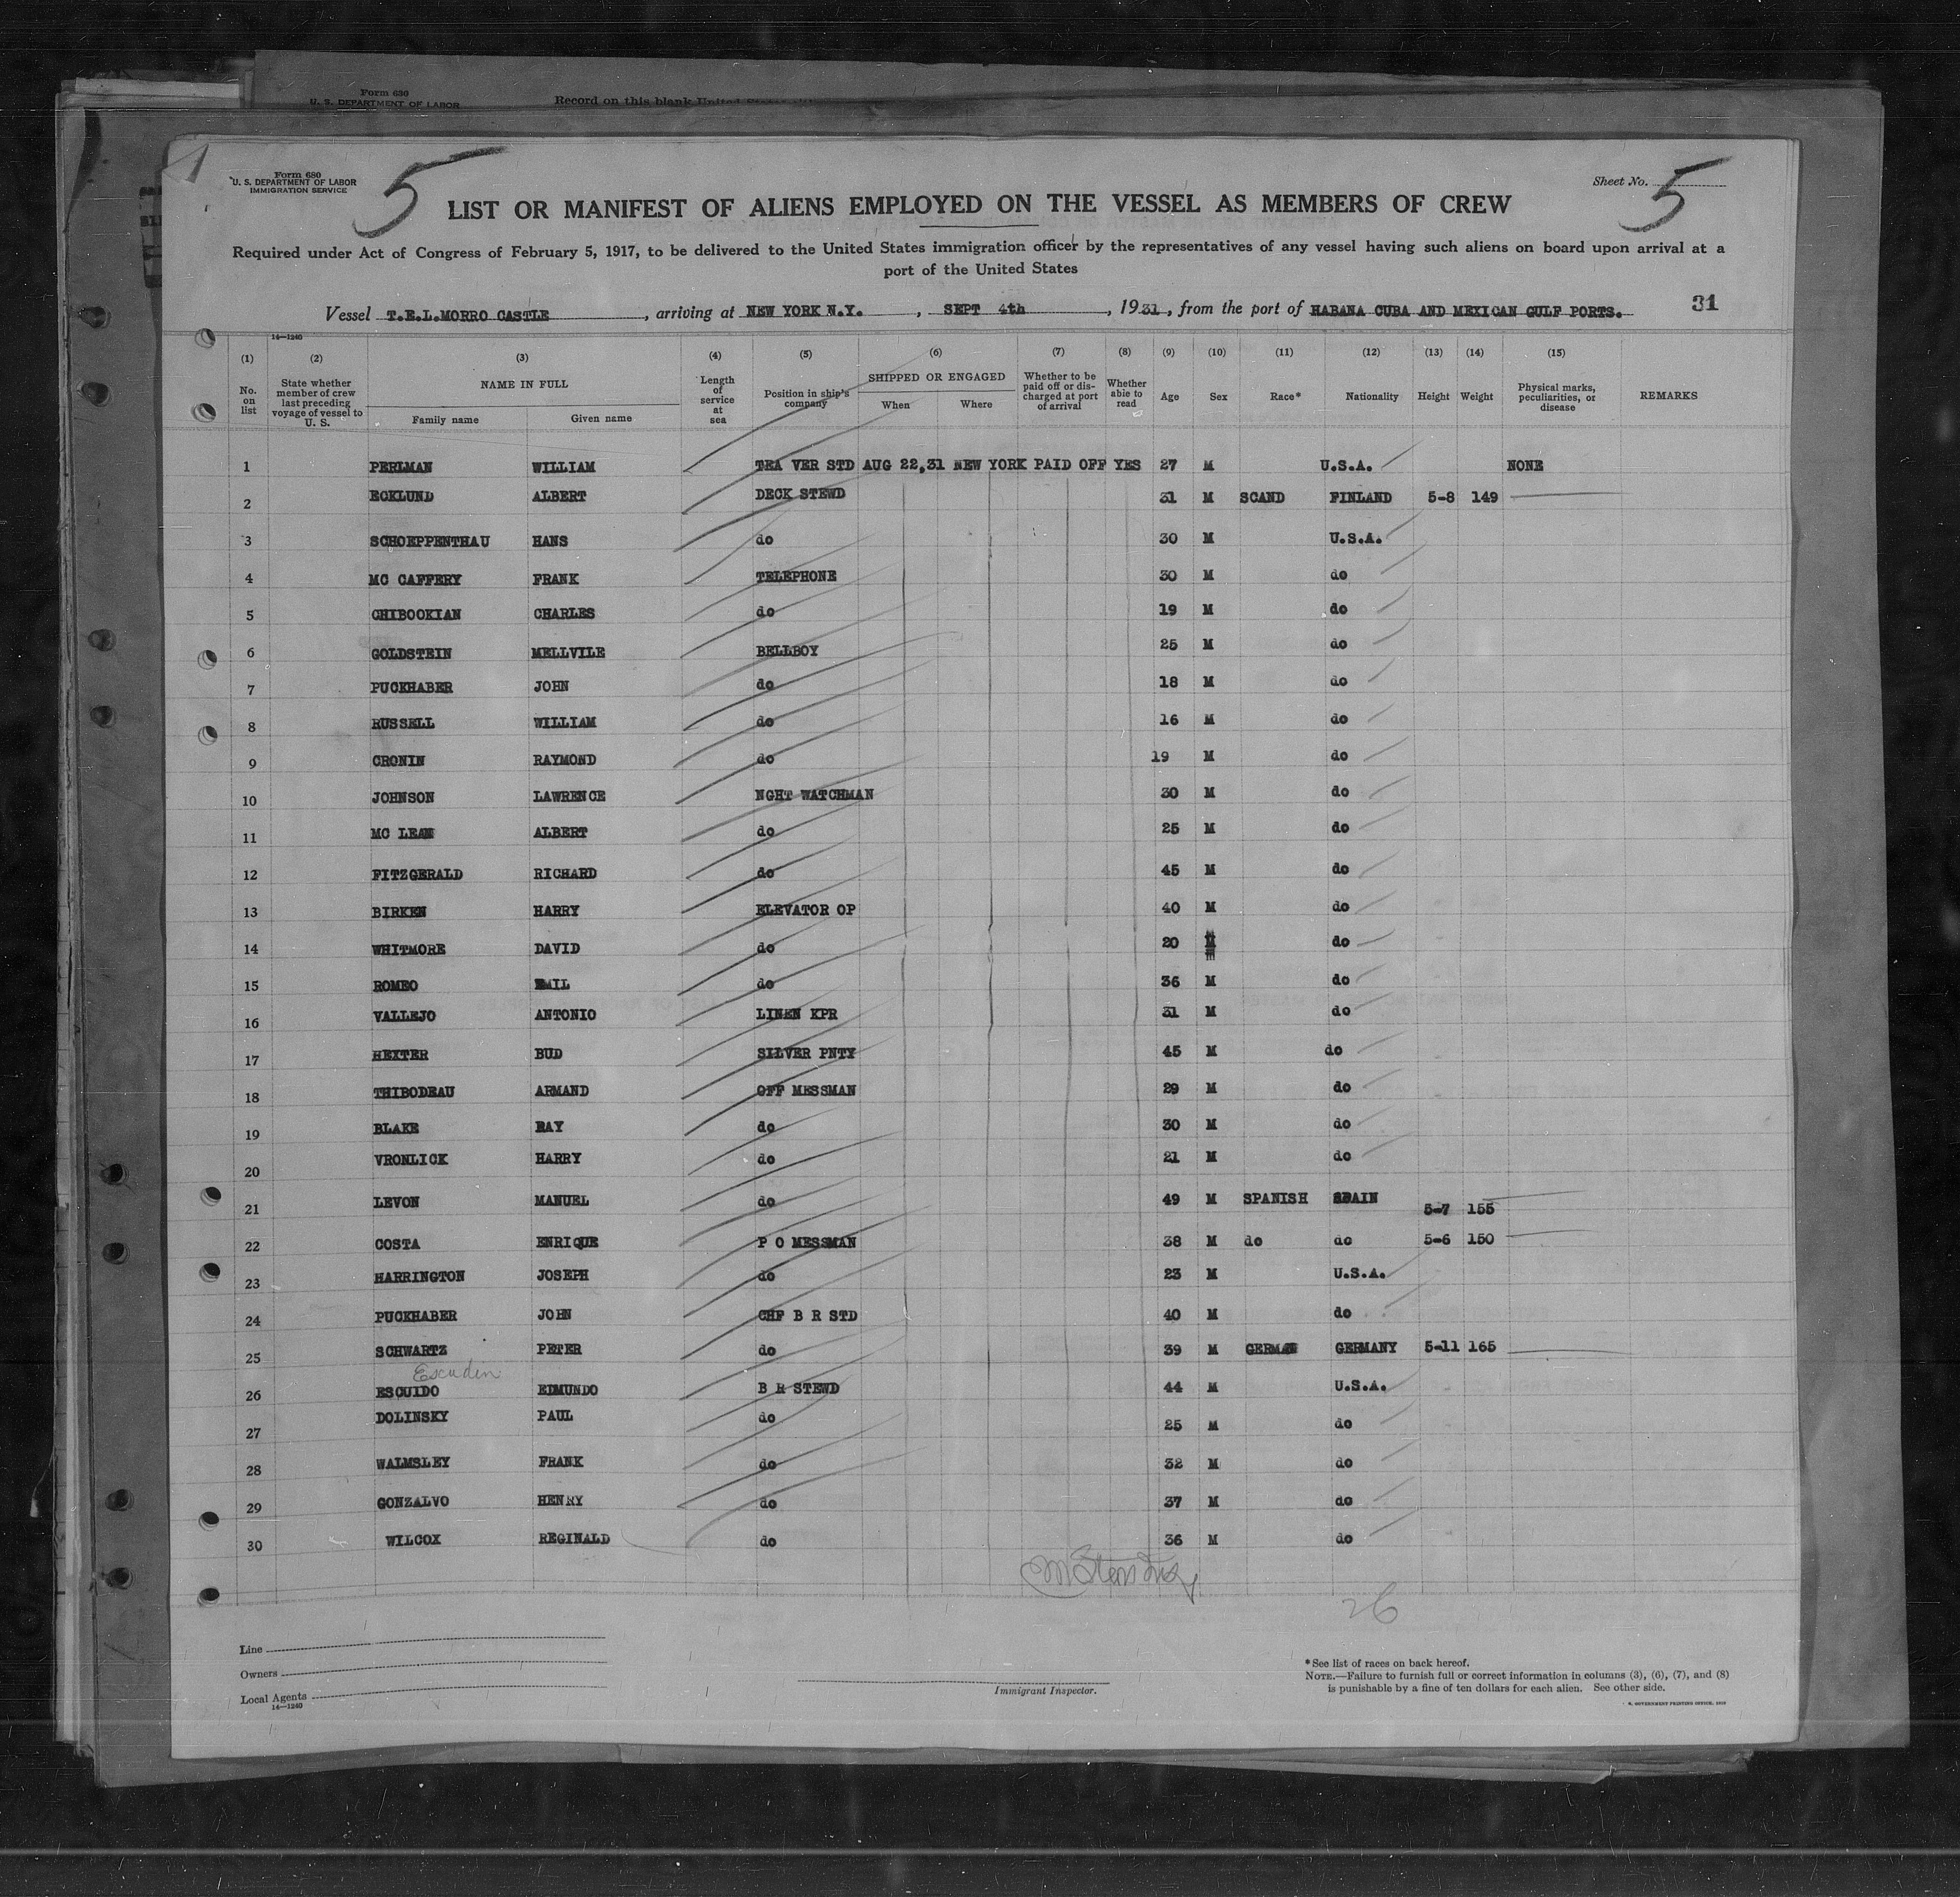 Form 630
U. S. DEPARTMENT OF LABOR
Record on this blank United States
Form 680
U. S. DEPARTMENT OF LABOR
IMMIGRATION SERVICE
5
Sheet No. 5
LIST OR MANIFEST OF ALIENS EMPLOYED ON THE VESSEL AS MEMBERS OF CREW
Required under Act of Congress of February 5, 1917, to be delivered to the United States immigration officer by the representatives of any vessel having such aliens on board upon arrival at a
port of the United States
Vessel T.E.L.MORRO CASTLE, arriving at NEW YORK N.Y., SEPT 4th, 1931, from the port of HABANA CUBA AND MEXICAN GULF PORTS. 31
14—1240
(1) (2) (3) (4) (5) (6) (7) (8) (9) (10) (11) (12) (13) (14) (15)
No. on list
State whether member of crew last preceding voyage of vessel to U. S.
NAME IN FULL
Family name Given name
Length of service at sea
Position in ship's company
SHIPPED OR ENGAGED
When Where
Whether to be paid off or discharged at port of arrival
Whether able to read
Age Sex Race* Nationality Height Weight
Physical marks, peculiarities, or disease
REMARKS
1 PERLMAN WILLIAM TEA VER STD AUG 22,31 NEW YORK PAID OFF YES 27 M U.S.A. NONE
2 ECKLUND ALBERT DECK STEWD 31 M SCAND FINLAND 5-8 149
3 SCHOEPPENTHAU HANS do 30 M U.S.A.
4 MC CAFFERY FRANK TELEPHONE 30 M do
5 CHIBOOKIAN CHARLES do 19 M do
6 GOLDSTEIN MELLVILE BELLBOY 25 M do
7 PUCKHABER JOHN do 18 M do
8 RUSSELL WILLIAM do 16 M do
9 CRONIN RAYMOND do 19 M do
10 JOHNSON LAWRENCE NGHT WATCHMAN 30 M do
11 MC LEAN ALBERT do 25 M do
12 FITZGERALD RICHARD do 45 M do
13 BIRKEN HARRY ELEVATOR OP 40 M do
14 WHITMORE DAVID do 20 M do
15 ROMEO EMIL do 36 M do
16 VALLEJO ANTONIO LINEN KPR 31 M do
17 HEXTER BUD SILVER PNTY 45 M do
18 THIBODEAU ARMAND OFF MESSMAN 29 M do
19 BLAKE RAY do 30 M do
20 VRONLICK HARRY do 21 M do
21 LEVON MANUEL do 49 M SPANISH SPAIN 5-7 155
22 COSTA ENRIQUE P O MESSMAN 38 M do do 5-6 150
23 HARRINGTON JOSEPH do 23 M U.S.A.
24 PUCKHABER JOHN CHF B R STD 40 M do
25 SCHWARTZ PETER do 39 M GERMAN GERMANY 5-11 165
Escuden
26 ESCUIDO EDMUNDO B R STEWD 44 M U.S.A.
27 DOLINSKY PAUL do 25 M do
28 WALMSLEY FRANK do 32 M do
29 GONZALVO HENRY do 37 M do
30 WILCOX REGINALD do 36 M do
26
Line
Owners
Local Agents
14—1240
Immigrant Inspector.
*See list of races on back hereof.
NOTE.—Failure to furnish full or correct information in columns (3), (6), (7), and (8)
is punishable by a fine of ten dollars for each alien. See other side.